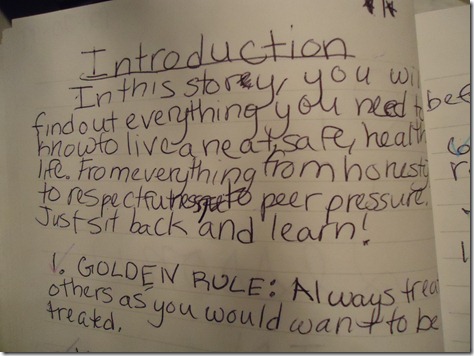 Introduction
In this storey, you wi
find out everything you need
know to live a neat, safe, health
life. From everything from honest
to respectfulness to peer pressure.
Just sit back and learn!
1. GOLDEN RULE: Always trea
others as you would want to be
treated.